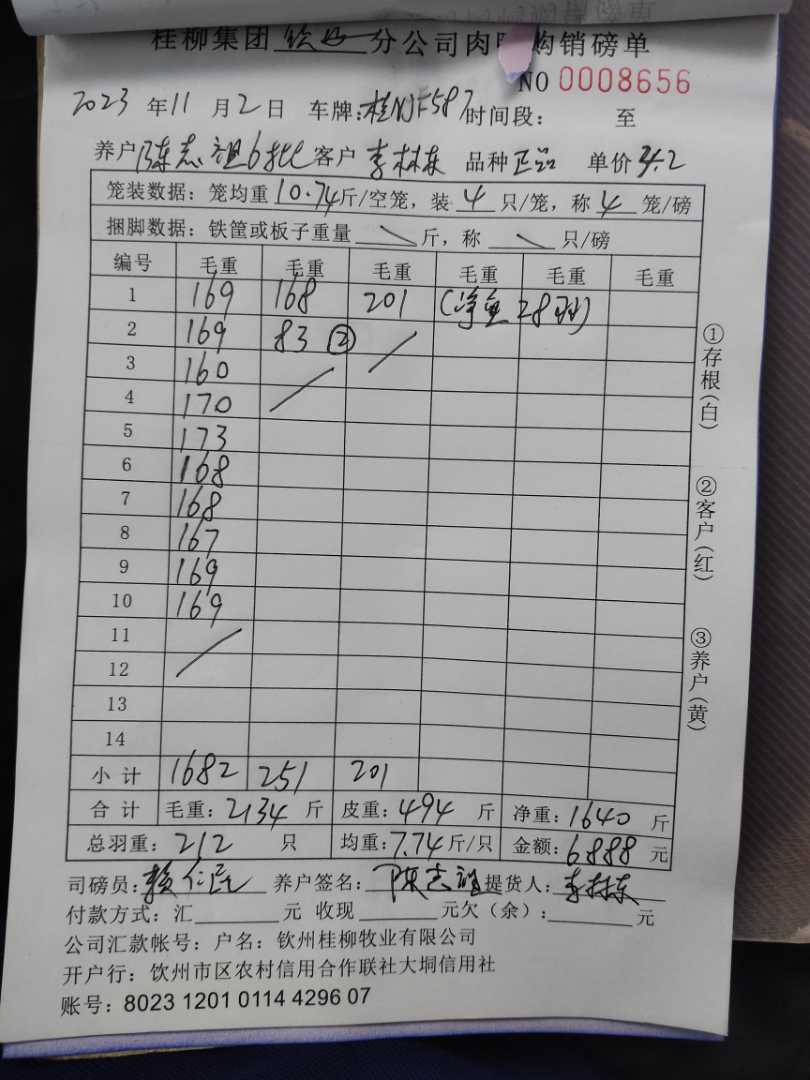 桂柳集团 钦州 分公司肉 购销磅单
NO 0008656
2023 年 11 月 2 日 车牌: 桂NJF587 时间段: 至
养户 陈志祖6批 客户 李林东 品种 正品 单价
笼装数据: 笼均重 10.74 斤/空笼, 装 4 只/笼, 称 4 笼/磅
捆脚数据: 铁筐或板子重量 \ 斤, 称 \ 只/磅
编号 毛重 毛重 毛重 毛重 毛重 毛重
1 169 168 201 (净重28羽)
2 169 83 ② /
3 160 /
4 170
5 173
6 168
7 168
8 167
9 169
10 169
11 /
12
13
14
小计 1682 251 201
合计 毛重: 2134 斤 皮重: 494 斤 净重: 1640 斤
总羽重: 212 只 均重: 7.74 斤/只 金额: 6888 元
司磅员: 赖仁民 养户签名: 陈志祖 提货人: 李林东
付款方式: 汇 元 收现 元欠(余): 元
公司汇款帐号: 户名: 钦州桂柳牧业有限公司
开户行: 钦州市区农村信用合作联社大垌信用社
账号: 8023 1201 0114 4296 07
①存根(白)
②客户(红)
③养户(黄)